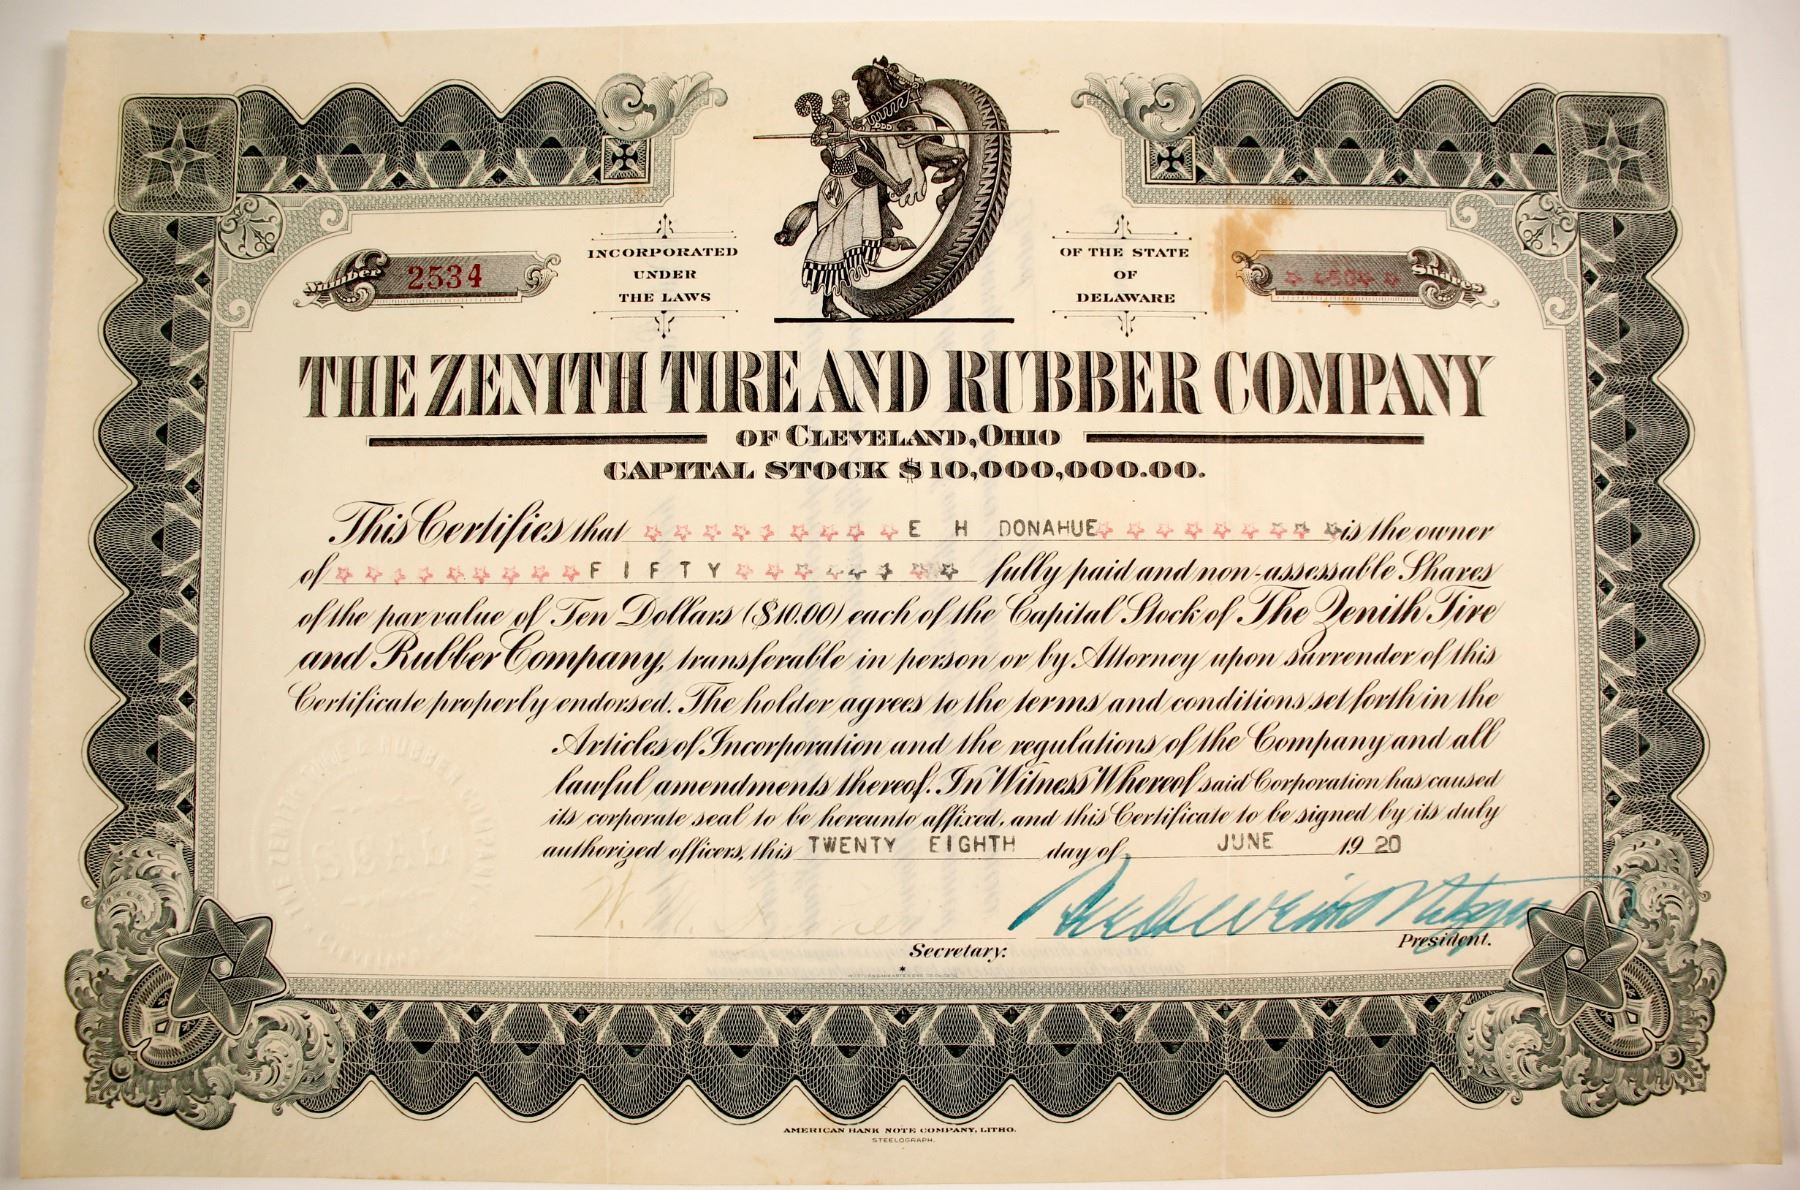 INCORPORATED
UNDER
THE LAWS
OF THE STATE
OF
DELAWARE
Number 2534
50 Shares
THE ZENITH TIRE AND RUBBER COMPANY
OF CLEVELAND, OHIO
CAPITAL STOCK $10,000,000.00.
This Certifies that E H DONAHUE is the owner
of FIFTY fully paid and non-assessable Shares
of the par value of Ten Dollars ($10.00) each of the Capital Stock of The Zenith Tire
and Rubber Company, transferable in person or by Attorney upon surrender of this
Certificate properly endorsed. The holder agrees to the terms and conditions set forth in the
Articles of Incorporation and the regulations of the Company and all
lawful amendments thereof. In Witness Whereof said Corporation has caused
its corporate seal to be hereunto affixed, and this Certificate to be signed by its duly
authorized officers, this TWENTY EIGHTH day of JUNE 1920
THE ZENITH TIRE & RUBBER COMPANY
SEAL
CLEVELAND
Secretary.
President.
AMERICAN BANK NOTE COMPANY, LITHO.
STEELOGRAPH.